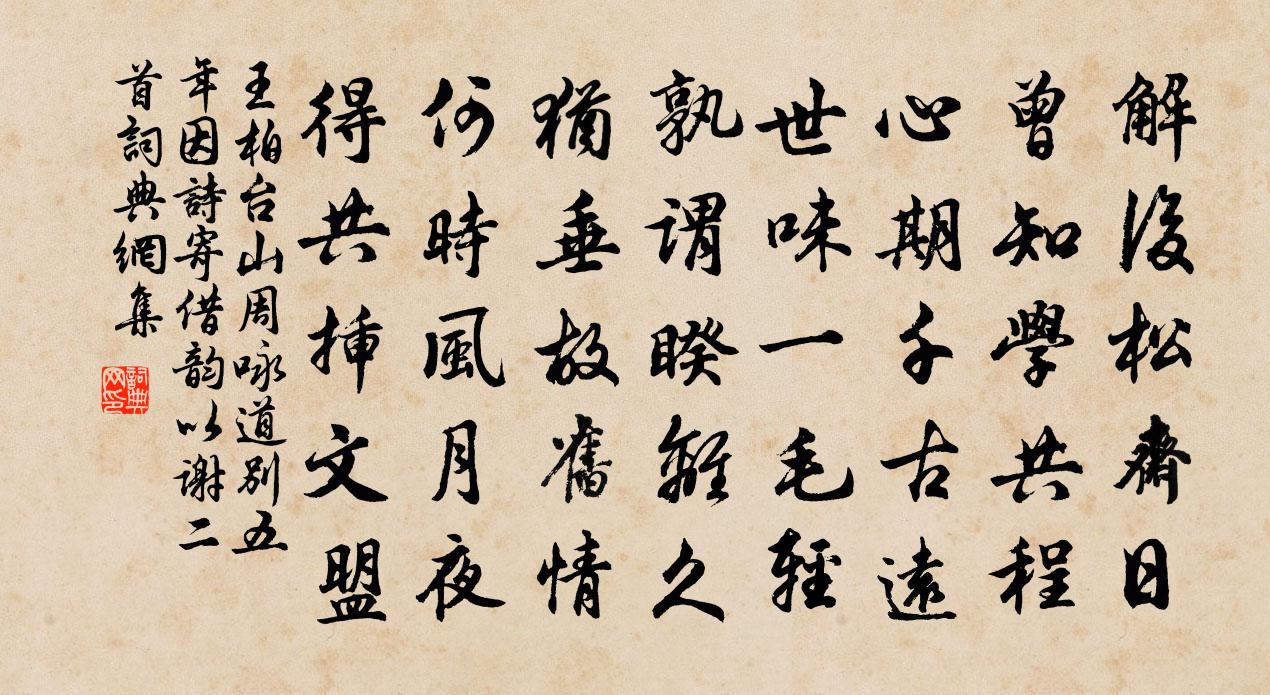 解後松齋日
曾知學共程
心期千古遠
世味一毛輕
孰謂暌離久
猶垂故舊情
何時風月夜
得共挿文盟
王柏台山周咏道別五
年因詩寄借韵以謝二
首詞典網集
詞典网印